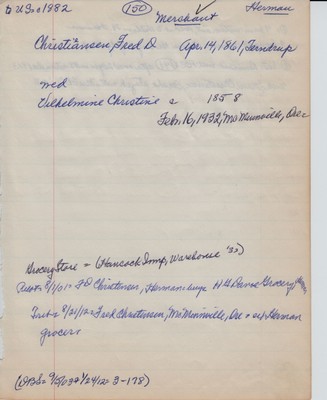 to U.S. 1882 (150) Merchant Herman
Christiansen, Fred D. Apr. 14, 1861, Terndrup
med
Vilhelmine Christine 2 1858
Feb. 16, 1932, McMinnville, Ore
Grocery Store = (Hancock Imp, Warehouse '33)
8/1/01 = F D Christiansen, Herman buys H G Danoe Grocery
Trib = 8/21/12 = Fred Christiansen, McMinnville, Ore = ex Herman
grocer
(DBS = 9/5/03 = 1/24/12 = 3-178)